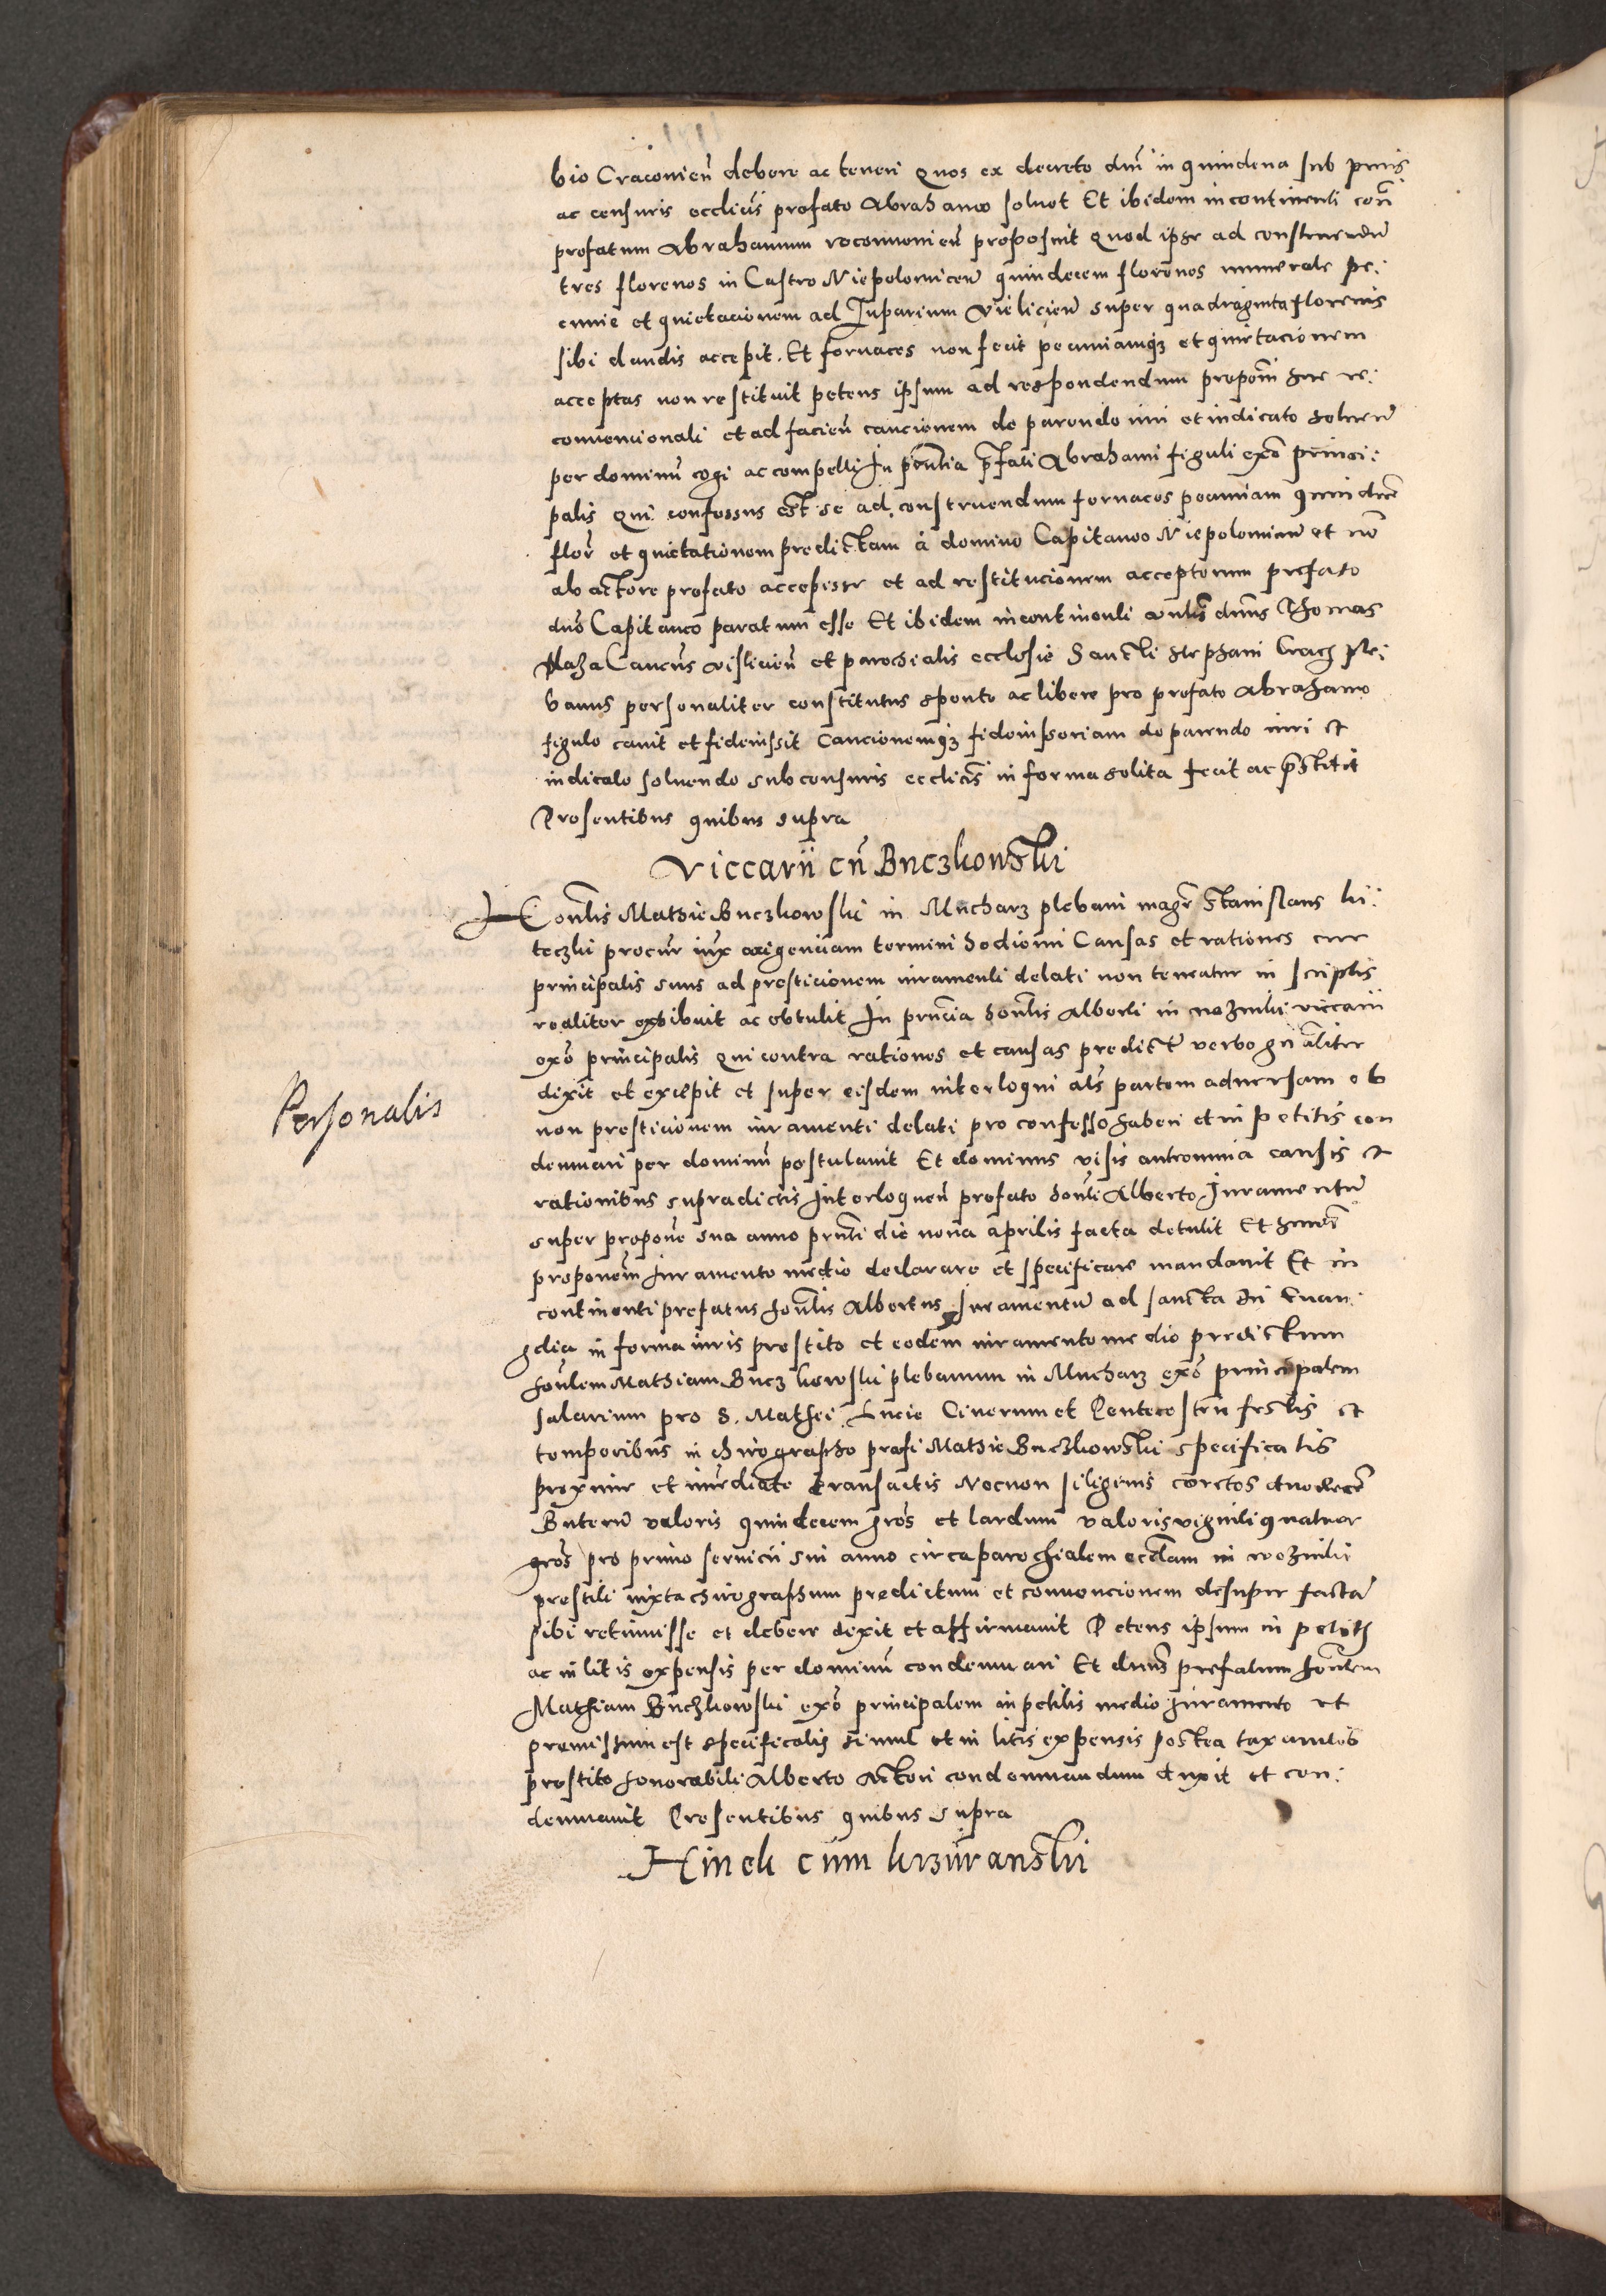 bio Cracovien̄ debere ac teneri Quos ex decreto dni in quindena sub penis
ac censuris ecclicis prefato Abrahamo solvet Et ibidem incontinenti con̄
prefatum Abrahamum reconvenien̄ proposuit Quod ipse ad construendū
tres florenos in Castro Niepolomicen̄ quindecem florenos numerate pe:
cunie et quietacionem ad Zuparium Vielicien̄ super quadraginta florenis
sibi dandis accepit. Et fornaces non fecit pecuniamqz et quietacionem
acceptas non restituit petens ipsum ad respondendum proponi sue re:
convencionali et ad facien̄ caucionem de parendo iuri et iudicato solven̄
per dominū cogi ac compelli In pn̄tia p̄fati Abrahami figuli exo princi:
palis Qui confessus est se ad construendum fornaces pecuniam quindece
flor̄ et quietationem predictam à domino Capitaneo Niepolomicen̄ et nō
ab actore prefato accepisse et ad restitucionem acceptorum prefato
dno Capitaneo paratum esse Et ibidem incontinenti dnus Thomas
Plaza Canc̄us vislicien̄ et parochialis ecclesie Sancti Stephani Crac̄ Ple:
banus personaliter constitutus sponte ac libere pro prefato Abrahamo
figulo cavit et fideiussit Caucionemqz fideiussoriam de parendo iuri et
iudicato solvendo sub censuris ecclicis in forma solita fecit ac p̄stitit
Presentibus quibus supra
Viccarii cū Buczkowski
Honlis Mathie Buczkowski in Mucharz plebani magr̄ Stanislaus Lu:
teczki procur̄ iux exigenciam termini hodierni Causas et rationes cur
principalis suus ad presticionem iuramenti delati non teneatur in scriptis
realiter exhibuit ac obtulit In prn̄cia honlis Alberti in wozniki viccarii
exō principalis Qui contra rationes et causas predictas verbo gn̄aliter
dixit et excepit et super eisdem interloqui als partem adversam ob
non presticionem iuramenti delati pro confesso haberi et in petitis con
demnari per dominū postulavit Et dominus visis antronmia causis et
rationibus supradictis Interloquen̄ prefato honli Alberto Iuramentū
super propone sua anno prn̄ti die nona aprilis facta detulit Et huiusmōi
proponem Iuramento medio declarare et specificare mandavit Et in
continenti prefatus honlis Albertus Iuramentū ad sancta dei Evan:
gelia in forma iuris prestito et eodem iuramento medio predictum
honlem Mathiam Buczkowski plebanum in Mucharz exō principalem
salarium pro S. Mathei Lucie Cinerum et Pentecosten festis et
temporibus in chirographo prefi Mathie Buczkowski specificatis
proxime et immediate transactis Necnon siliginis coretos duodecē
Buterū valoris quindecem gros et lardum valoris viginti quatuor
gros pro primo servicii sui anno circa parochialem eccl̄am in wozniki
prestiti iuxta chirographum predictum et convencionem desuper factā
sibi retinuisse et debere dixit et affirmavit Petens ipsum in petitis
ac in litis expensis per dominū condemnari Et dnus prefatum honlem
Mathiam Buczkowski exō principalem in petitis medio iuramento ut
premissum est specificatis simul et in litis expensis postea taxandis
prestito honorabili Alberto Actori condemnandum duxit et con:
demnavit Presentibus quibus supra
Personalis
Hinek cum Krzivanski